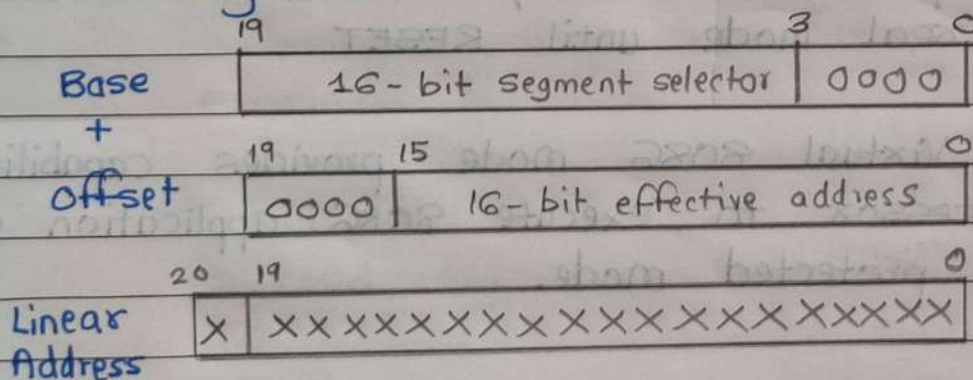 19 3 0
Base 16-bit segment selector 0000
+
19 15 0
offset 0000 16-bit effective address
20 19 0
Linear X XXXXXXXXXXXXXXXXXXXX
Address